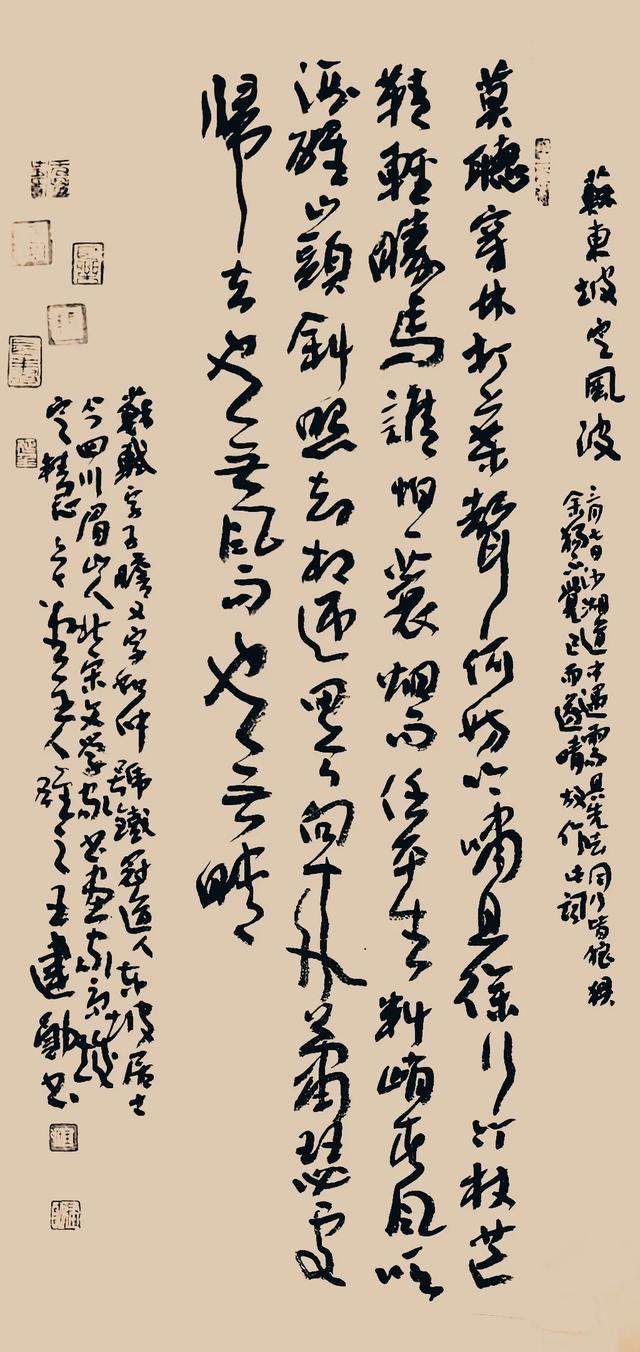 蘇東坡定風波
三月七日沙湖道中遇雨雨具先去同行皆狼狽
余獨不覺已而遂晴故作此詞
莫聽穿林打葉聲何妨吟嘯且徐行竹杖芒
鞋輕勝馬誰怕一蓑烟雨任平生料峭春風吹
酒醒山頭斜照却相迎回首向来蕭瑟處
歸去也無風雨也無晴
蘇軾字子瞻又字和仲號鐵冠道人東坡居士
四川眉山人北宋文學家書畫家
王建勳书